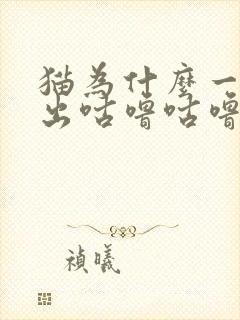 猫為什麼一
出咕嚕咕嚕
禎曦